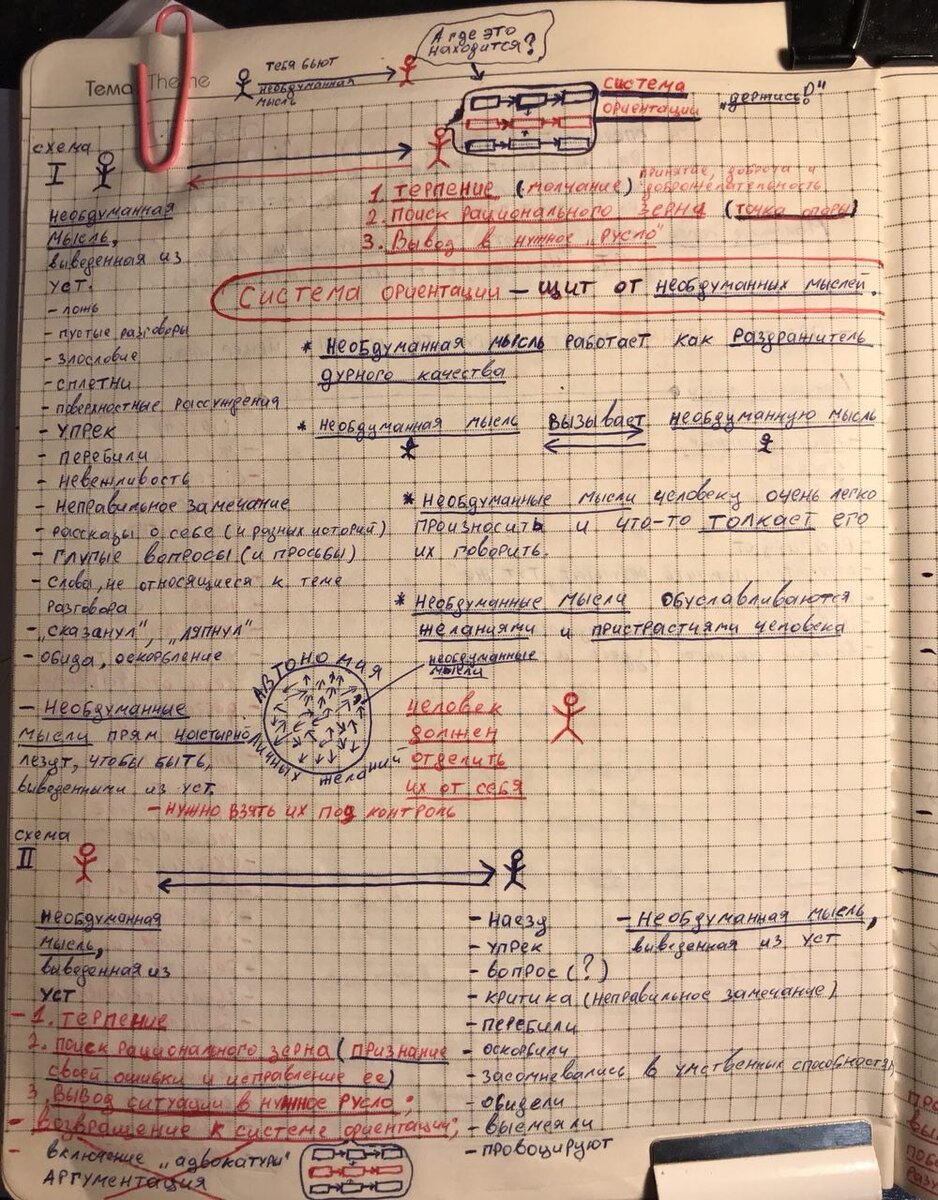 Тема Theme
А где это
находится?
тебя бьют
необдуманная
мысль
система
ориентации
„держись!"
схема
I
1. терпение (молчание) принятие, доброта и
доброжелательность
2. поиск рационального зерна (точка опоры)
3. Вывод в нужное „русло"
необдуманная
мысль,
выведенная из
уст.
- ложь
- пустые разговоры
- злословие
- сплетни
- поверхностные рассуждения
- упрек
- перебили
- невежливость
- неправильное замечание
- рассказы о себе (и разных историй)
- глупые вопросы (и просьбы)
- слова, не относящиеся к теме
разговора
- „сказанул", „ляпнул"
- обида, оскорбление
система ориентации – щит от необдуманных мыслей.
* Необдуманная мысль работает как раздражитель
дурного качества
* необдуманная мысль вызывает необдуманную мысль
* необдуманные мысли человеку очень легко
произносить и что-то толкает его
их говорить.
* необдуманные мысли обуславливаются
желаниями и пристрастиями человека
АВТОНОМИЯ
личных желаний
необдуманные
мысли
- Необдуманные
мысли прям настырно
лезут, чтобы быть,
выведенными из уст.
человек
должен
отделить
их от себя
- нужно взять их под контроль
схема
II
необдуманная
мысль,
выведенная из
уст
- 1. терпение
2. поиск рационального зерна (признание
своей ошибки и исправление ее)
3. Вывод ситуации в нужное русло;
- возвращение к системе ориентации;
- включение „адвокатуры"
аргументация
- наезд
- упрек
- вопрос (?)
- критика (неправильное замечание)
- перебили
- оскорбили
- засомневались в умственных способностях
- обидели
- высмеяли
- провоцируют
- необдуманная мысль,
выведенная из уст